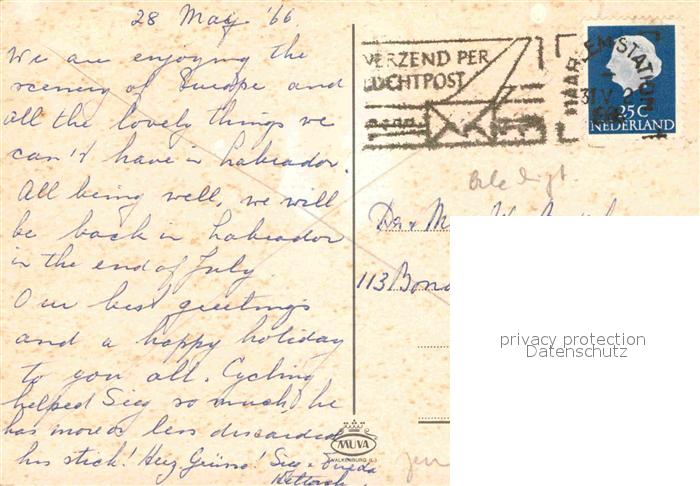 28 May '66
We are enjoying the
scenery of Europe and
all the lovely things we
can't have in Labrador.
All being well, we will
be back in Labrador
in the end of July.
Our best greetings
and a happy holiday
to you all. Cycling
helped Sieg so much, he
has more or less discarded
his stick! Herz. Grüsse! Sieg +
VERZEND PER
LUCHTPOST
HAARLEM STATION
31 V
25C
NEDERLAND
Dr. + M
113 Bond
MUVA
VALKENBURG (L.)
privacy protection
Datenschutz